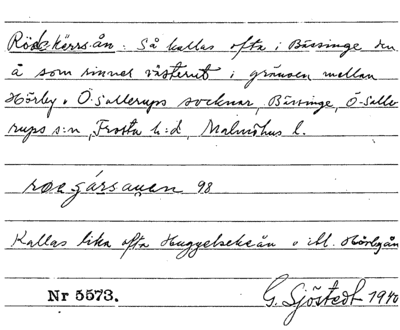 Rödekärrsån: Så kallas ofta i Bässinge den
å som rinner västerut i gränsen mellan
Hörby o Ö-Sallerups socknar, Bässinge, Ö-Salle-
rups s:n, Frosta h:d, Malmöhus l.
98
Kallas lika ofta o ibl. Hörbyån
Nr 5573. G. Sjöstedt 1940